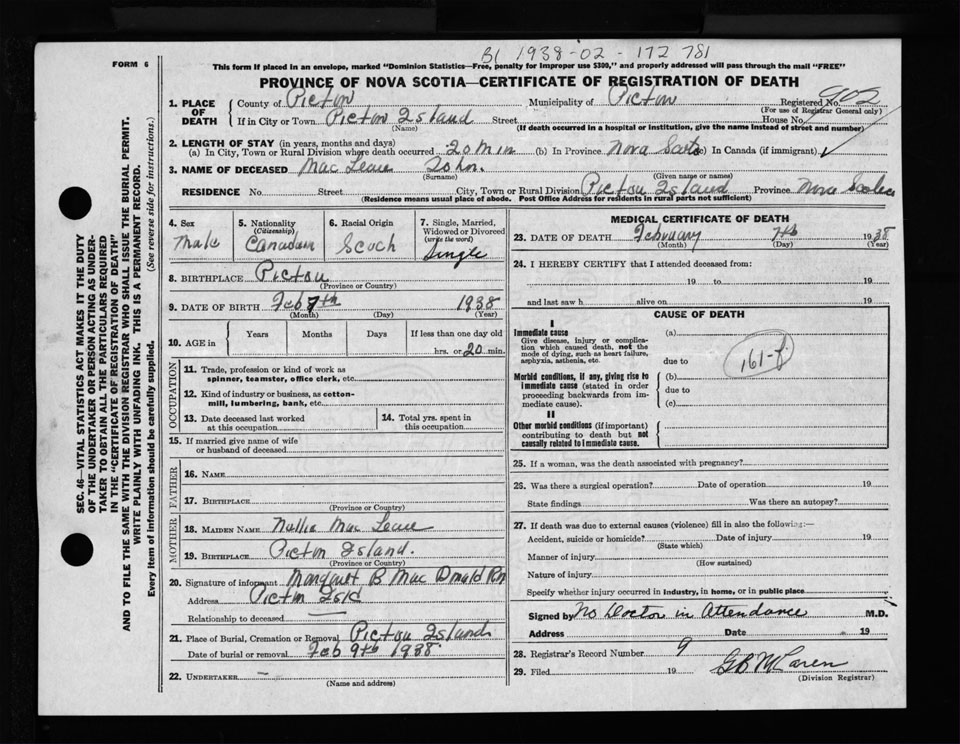 B1 1938-02-172 781
FORM 6
This form if placed in an envelope, marked "Dominion Statistics—Free, penalty for improper use $300," and properly addressed will pass through the mail "FREE"
PROVINCE OF NOVA SCOTIA—CERTIFICATE OF REGISTRATION OF DEATH
SEC. 46—VITAL STATISTICS ACT MAKES IT THE DUTY
OF THE UNDERTAKER OR PERSON ACTING AS UNDER-
TAKER TO OBTAIN ALL THE PARTICULARS REQUIRED
IN THE "CERTIFICATE OF REGISTRATION OF DEATH"
AND TO FILE THE SAME WITH THE DIVISION REGISTRAR WHO SHALL ISSUE THE BURIAL PERMIT.
WRITE PLAINLY WITH UNFADING INK. THIS IS A PERMANENT RECORD.
Every item of information should be carefully supplied. (See reverse side for instructions.)
1. PLACE OF DEATH County of Pictou Municipality of Pictou Registered No. 902
(For use of Registrar General only)
If in City or Town Pictou Island Street House No.
(Name) (If death occurred in a hospital or institution, give the name instead of street and number)
2. LENGTH OF STAY (in years, months and days)
(a) In City, Town or Rural Division where death occurred 20 Min (b) In Province Nova Scotia (c) In Canada (if immigrant)
3. NAME OF DECEASED Mac Lean John.
(Surname) (Given name or names)
RESIDENCE No. Street City, Town or Rural Division Pictou Island Province Nova Scotia
(Residence means usual place of abode. Post Office Address for residents in rural parts not sufficient)
4. Sex Male
5. Nationality (Citizenship) Canadian
6. Racial Origin Scoch
7. Single, Married, Widowed or Divorced (write the word) Single
8. BIRTHPLACE Pictou
(Province or Country)
9. DATE OF BIRTH Feb 7th 1938
(Month) (Day) (Year)
10. AGE in Years Months Days If less than one day old
hrs. or 20 min.
OCCUPATION
11. Trade, profession or kind of work as
spinner, teamster, office clerk, etc.
12. Kind of industry or business, as cotton-
mill, lumbering, bank, etc.
13. Date deceased last worked
at this occupation
14. Total yrs. spent in
this occupation
15. If married give name of wife
or husband of deceased
FATHER
16. NAME
17. BIRTHPLACE
(Province or Country)
MOTHER
18. MAIDEN NAME Nellie Mac Lean
19. BIRTHPLACE Pictou Island.
(Province or Country)
20. Signature of informant Margaret B Mac Donald RN
Address Pictou Isld
Relationship to deceased
21. Place of Burial, Cremation or Removal Pictou Island
Date of burial or removal Feb 9th 1938.
22. UNDERTAKER
(Name and address)
MEDICAL CERTIFICATE OF DEATH
23. DATE OF DEATH February 7th 1938
(Month) (Day) (Year)
24. I HEREBY CERTIFY that I attended deceased from:
19 to 19
and last saw h alive on 19
CAUSE OF DEATH
I
Immediate cause (a)
Give disease, injury or complica-
tion which caused death, not the
mode of dying, such as heart failure,
asphyxia, asthenia, etc.
due to
161-f
Morbid conditions, if any, giving rise to (b)
immediate cause (stated in order
proceeding backwards from im-
mediate cause).
due to
(c)
II
Other morbid conditions (if important)
contributing to death but not
causally related to immediate cause.
25. If a woman, was the death associated with pregnancy?
26. Was there a surgical operation? Date of operation 19
State findings Was there an autopsy?
27. If death was due to external causes (violence) fill in also the following:
Accident, suicide or homicide? Date of injury 19
(State which)
Manner of injury
(How sustained)
Nature of injury
Specify whether injury occurred in industry, in home, or in public place
Signed by No Doctor in Attendance M.D.
Address Date 19
28. Registrar's Record Number 9
29. Filed 19 GB McLaren
(Division Registrar)